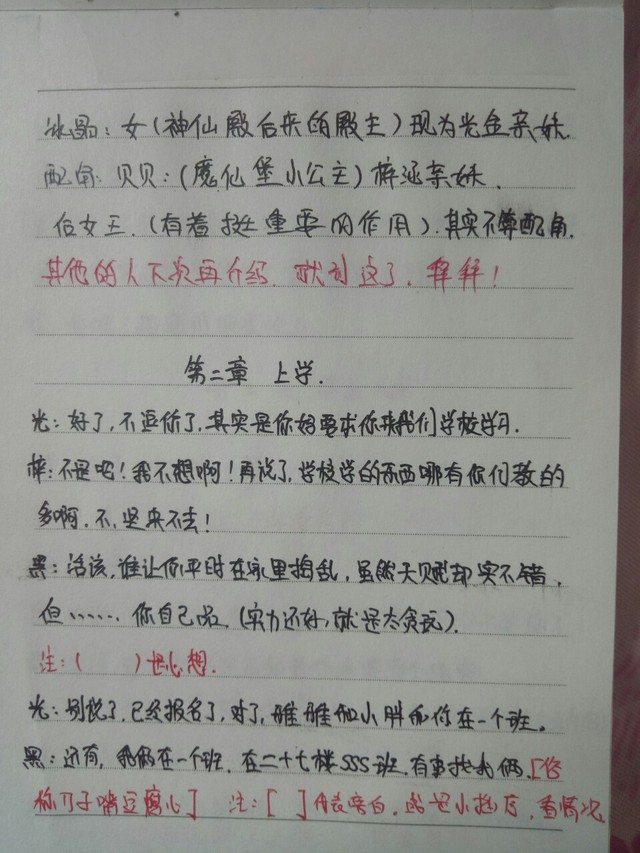 冰晶：女（神仙殿后来的殿主）现为光金亲妹.
配角：贝贝：（魔仙堡小公主）梓涵亲妹.
后女王.（有着挺重要的作用）.其实不算配角.
其他的人下次再介绍.就到这了.拜拜！
第二章 上学.
光：好了，不逗你了，其实是你妈要求你来我们学校学习.
梓：不是吧！我不想啊！再说了，学校学的东西哪有你们教的
多啊，不，坚决不去！
黑：活该，谁让你平时在家里捣乱，虽然天赋却实不错，
但…… 你自己呢.（实力还好，就是太贪玩）.
注：（ ）也心想.
光：别说了，已经报名了，对了，胖和你在一个班。
黑：还有，我俩在一个班，在二十七楼SSS班.有事找我俩.[
你刀子嘴豆腐心] 注：[ ]代表旁白，也是小，看情况.